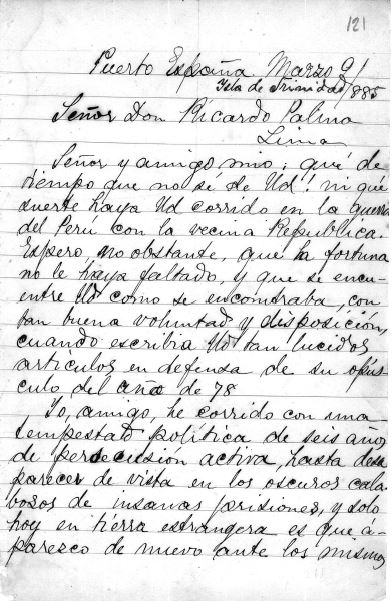 121
Puerto España Marzo 9/
Ysla de Trinidad/885
Señor Don Ricardo Palma
Lima
Señor y amigo mio: qué de
tiempo que no sé de Ud! ni qué
suerte haya Ud corrido en la guerra
del Perú con la vecina República.
Espero, no obstante, que la fortuna
no le haya faltado, y que se encu-
entre Ud como se encontraba, con
tan buena voluntad y disposición,
cuando escribia Ud tan lucidos
articulos en defensa de su opús-
culo del año de 78
Yo, amigo, he corrido con una
tempestad política de seis años
de persecusión activa, hasta desa
parecer de vista en los oscuros cala
bosos de insanas prisiones, y solo
hoy en tierra estrangera es que á-
paresco de nuevo ante los mismos